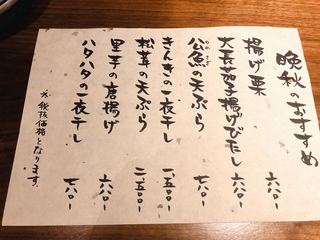 晩秋のおすすめ
揚げ栗 六八〇-
大長茄子揚げびたし 六八〇-
公魚の天ぷら 七八〇-
きんきの一夜干し 一、五〇〇-
松茸の天ぷら 二、五〇〇-
里芋の唐揚げ 六八〇-
ハタハタの一夜干し 七八〇-
※税抜価格となります。